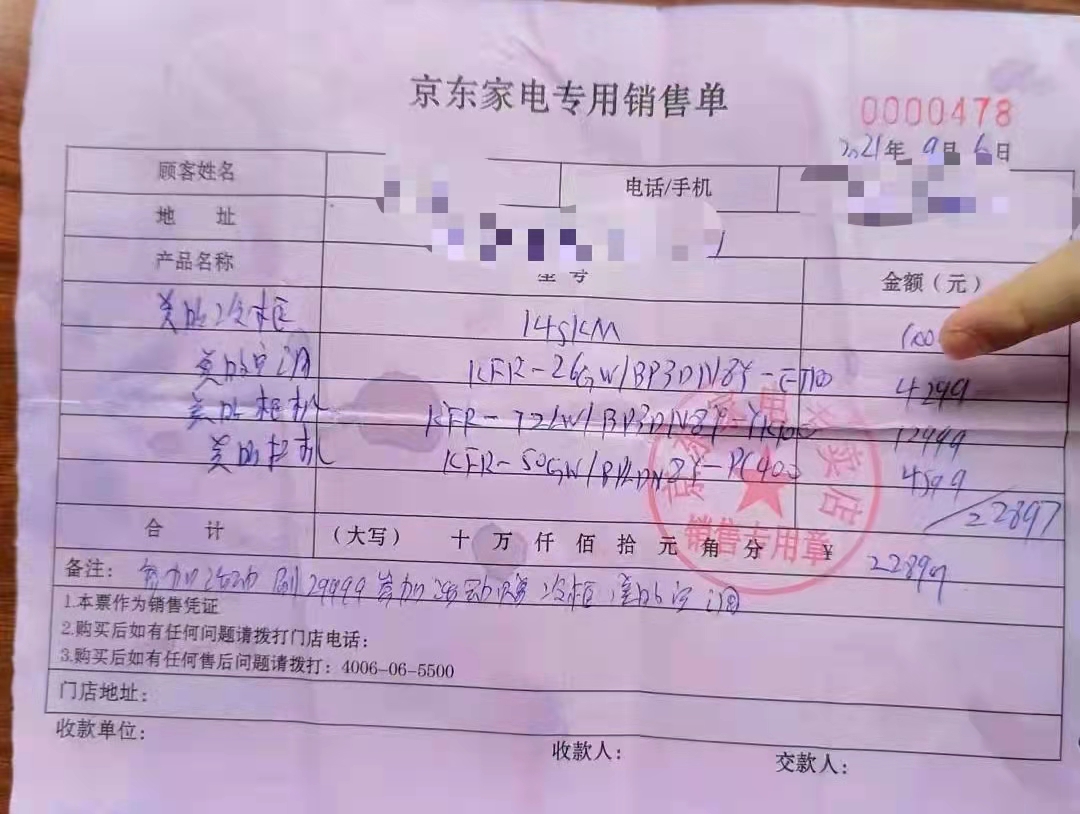 京东家电专用销售单
0000478
2021年 9月 6日
顾客姓名 电话/手机
地 址
产品名称 型号 金额(元)
美的冷柜 145KM
美的空调 KFR-26GW/BP3DN8Y- 4299
美的柜机 KFR-72LW/BP3DN8Y- 12999
美的挂机 KFR-50GW/ 4599
22897
合 计 (大写) 十 万 仟 佰 拾 元 角 分 ¥ 22897
备注: 参加活动 29999参加活动 冷柜 空调
1.本票作为销售凭证
2.购买后如有任何问题请拨打门店电话:
3.购买后如有任何售后问题请拨打: 4006-06-5500
门店地址:
收款单位:
收款人: 交款人:
京东家电专卖店
销售专用章